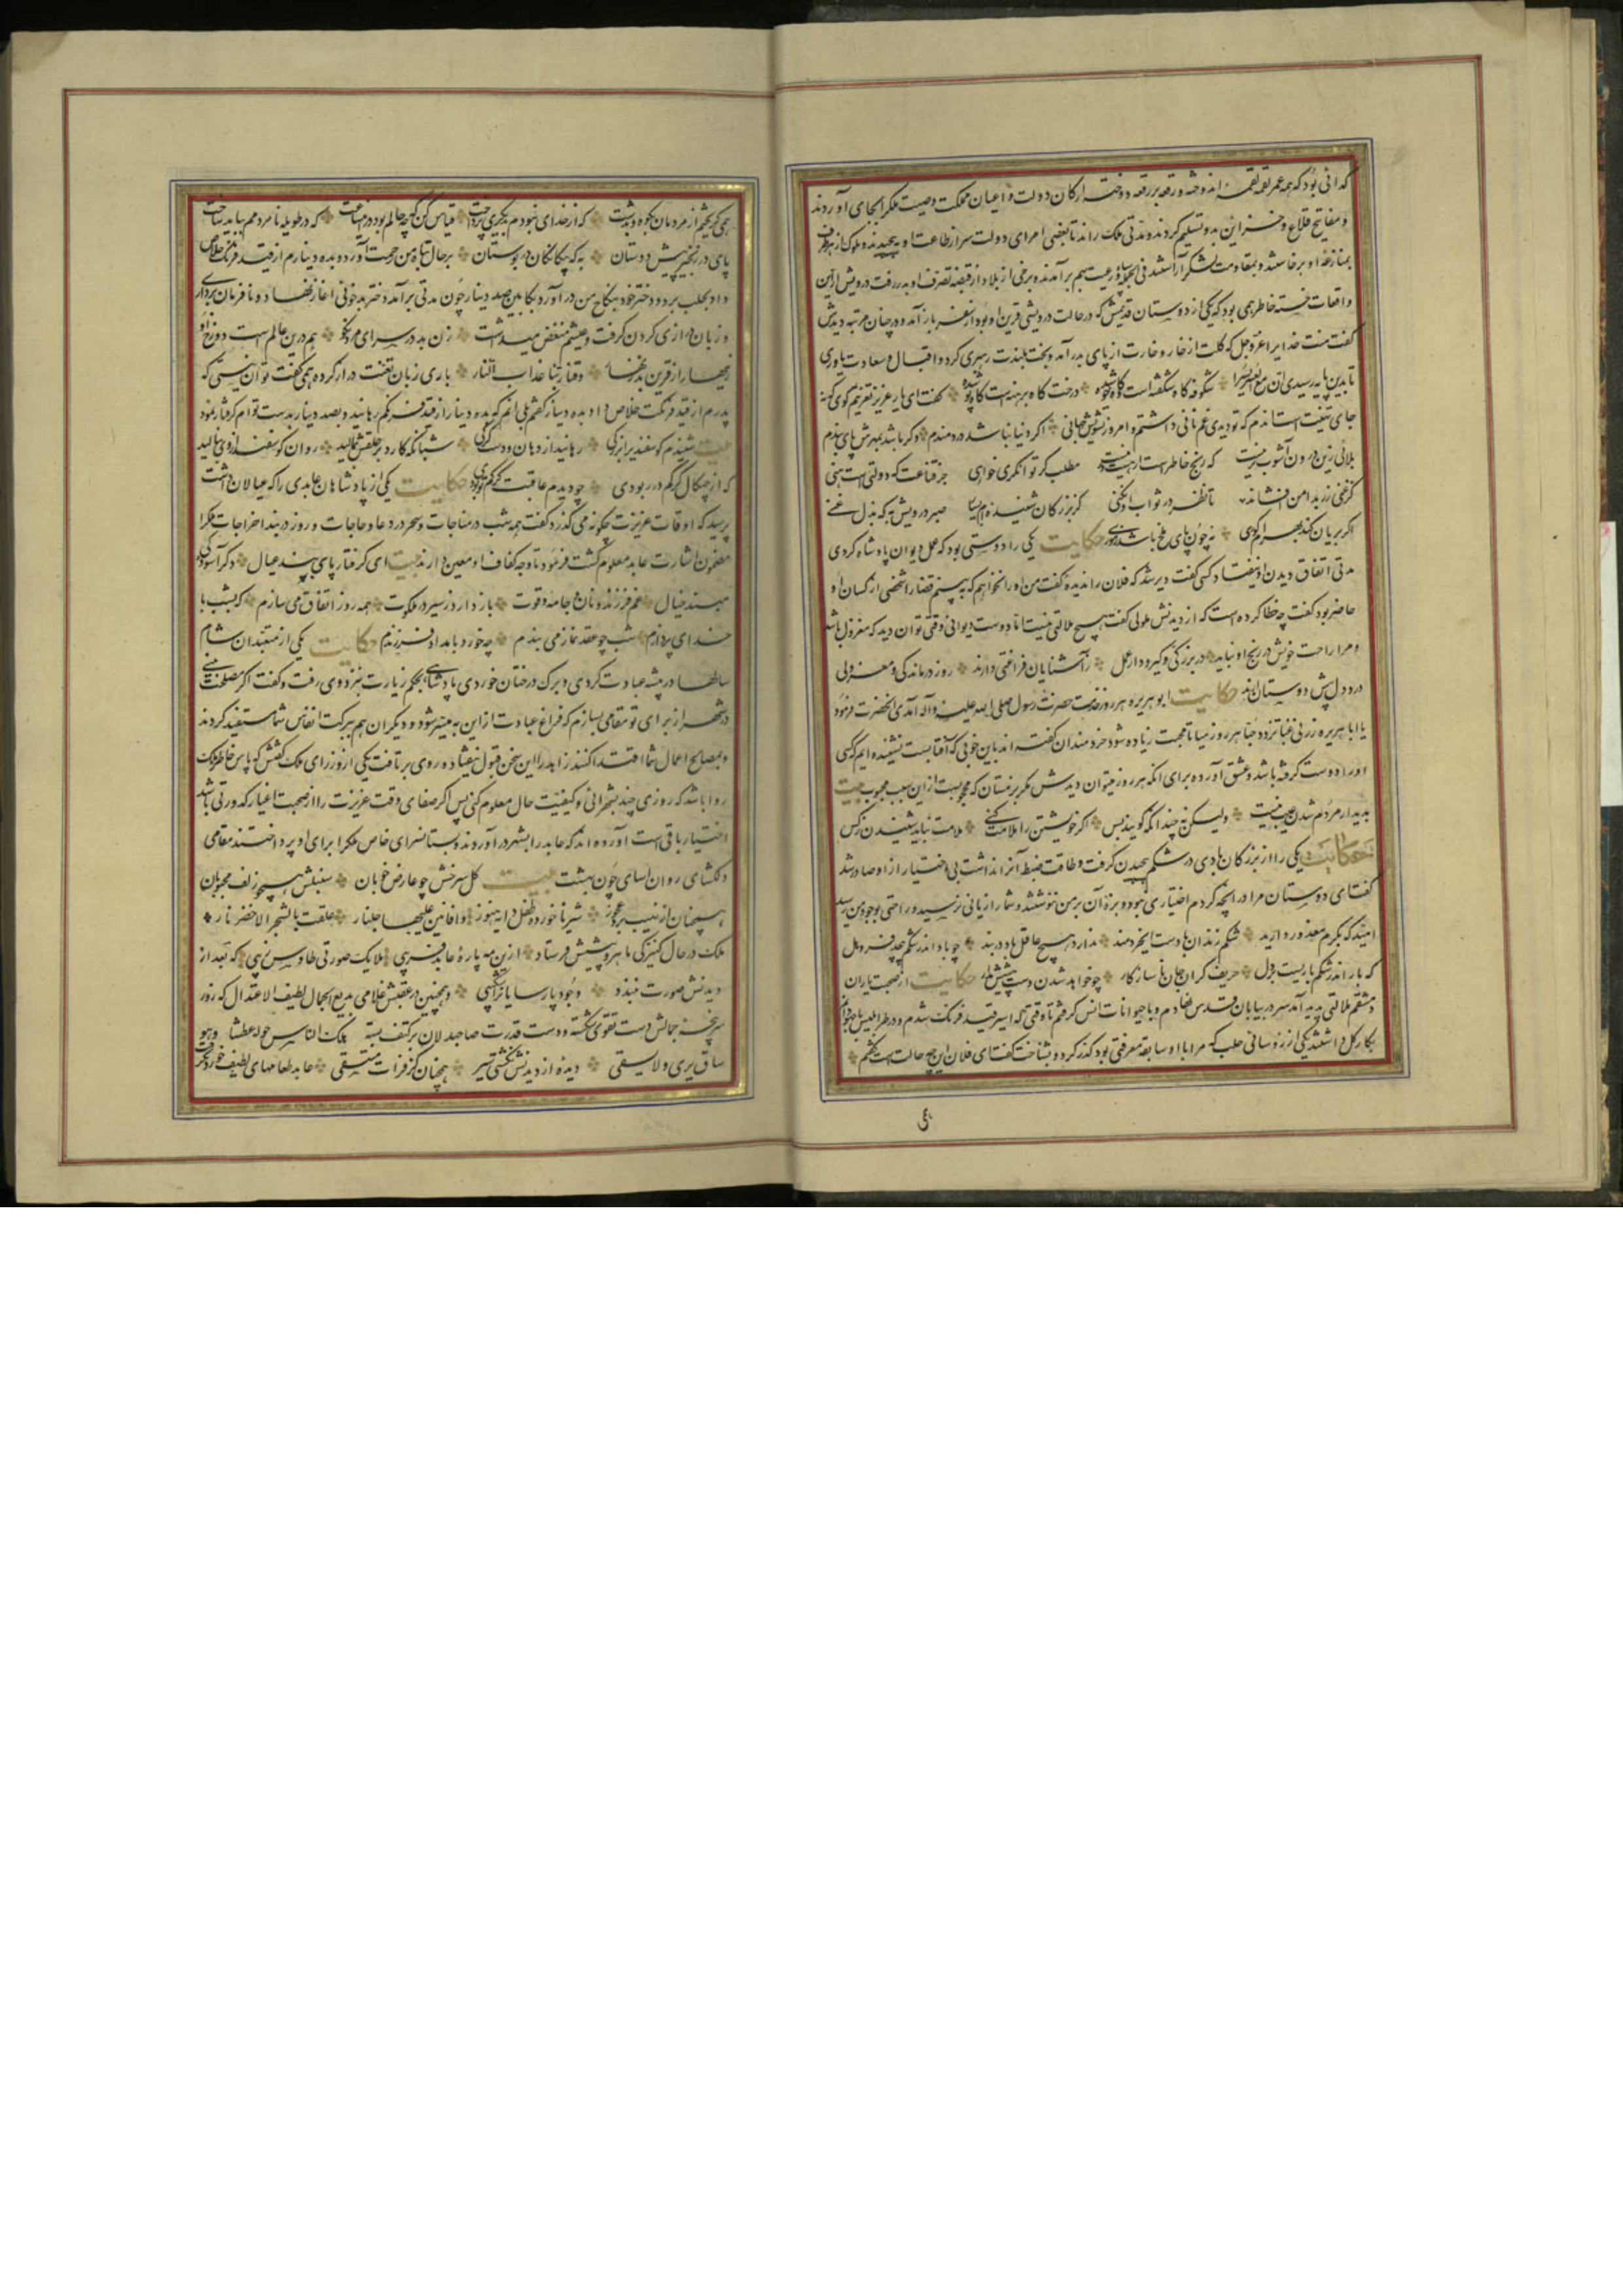 گدائی بود که همه عمر لقمه لقمه اندوخته و رقعه بر رقعه دوخته ارکان دولت و اعیان مملکت وصیت ملک را بجای آوردند
و مفاتیح قلاع و خزاین بدو تسلیم کردند و مدتی ملک راند تا بعضی امرای دولت سر از طاعت او بپیچیدند و ملوک از هر طرف
بمنازعه او برخاستند و بمقاومت لشکر آراستند فی الجمله سپاه و رعیت بهم برآمدند و برخی از بلاد از قبضه تصرف او بدر رفت درویش ازین
واقعات خسته خاطر همی بود که یکی از دوستان قدیمش که در حالت درویشی قرین او بود از سفر باز آمد و در چنان مرتبه دیدش
گفت منت خدایرا عز و جل که گلت از خار و خارت از پای بدر آمد و بخت بلندت رهبری کرد و اقبال و سعادت یاوری
تا بدین پایه رسیدی ان مع العسر یسرا شکوفه گاه شکفته است و گاه خوشیده درخت گاه برهنه است و گاه پوشیده گفت ای یار عزیز تعزیتم گوی که نه
جای تهنیت است اندم که تو دیدی غم نانی داشتم و امروز تشویش جهانی اگر دنیا نباشد دردمندم وگر باشد بمهرش پای بندم
بلائی زین درون آشوب تر نیست که رنج خاطر است ار هست و گر نیست مطلب گر توانگری خواهی جز قناعت که دولتی است هنی
گر غنی زر بدامن افشاند تا نظر در ثواب او نکنی کز بزرگان شنیده ام بسیار صبر درویش به که بذل غنی
اگر بریان کند بهرام گوری نه چون پای ملخ باشد ز موری حکایت یکی را دوستی بود که عمل دیوان پادشاه کردی
مدتی اتفاق دیدن او نیفتاد کسی گفت دیر شد که فلان را ندیده گفت من او را نخواهم که ببینم قضا را شخصی از کسان او
حاضر بود گفت چه خطا کرده است که از دیدنش ملولی گفت هیچ ملالتی نیست اما دوست دیوانی را وقتی توان دید که معزول باشد
و مرا راحت خویش در رنج او نباید در بزرگی و گیر و دار عمل ز آشنایان فراغتی دارند روز درماندگی و معزولی
درد دل پیش دوستان آرند حکایت ابو هریره هر روز بخدمت حضرت رسول صلی الله علیه و آله آمدی آنحضرت فرمود
یا ابا هریره زرنی غبا تزدد حبا هر روز میا تا محبت زیاده شود خردمندان گفته اند بدین خوبی که آفتابست نشنیده ایم که کسی
او را دوست گرفته باشد و عشق آورده برای آنکه هر روز میتوان دیدش مگر بزمستان که محجوبست ازین سبب محبوب بیت
بدیدار مردم شدن عیب نیست ولیکن نه چندانکه گویند بس اگر خویشتن را ملامت کنی ملامت نباید شنیدن ز کس
حکایت یکی را از بزرگان بادی در شکم پیچیدن گرفت و طاقت ضبط آن نداشت بی اختیار از او صادر شد
گفت ای دوستان مرا در آنچه کردم اختیاری نبود و بزه آن بر من ننوشتند و شما را زیانی نرسید و راحتی بوجود من رسید
امید که بکرم معذور دارید شکم زندان بادست ایخردمند ندارد هیچ عاقل باد در بند چو باد اندر شکم پیچد فرو هل
که باد اندر شکم باریست بر دل حریف گران جان ناسازگار چو خواهد شدن دست پیشش مدار حکایت از صحبت یاران
دمشقم ملالتی پدید آمد سر در بیابان قدس نهادم و با حیوانات انس گرفتم تا وقتی که اسیر قید فرنگ شدم و در طرابلس با جهودانم
بکار گل داشتند یکی از رؤسای حلب که مرا با او سابقه معرفتی بود گذر کرد و بشناخت گفت ای فلان این چه حالت است گفتم
همی گریختم از مردمان بکوه و بدشت که از خدای نبودم بدیگری پرداخت قیاس کن که چه حالم بود درین ساعت که در طویله نامردمم بباید ساخت
پای در زنجیر پیش دوستان به که با بیگانگان در بوستان بر حال تباه من رحمت آورد و بده دینارم از قید فرنگ خلاص
داد و بحلب برد و دختر خود بنکاح من در آورد بکابین صد دینار چون مدتی بر آمد دختر بدخوئی آغاز نهاد و نافرمان برداری
و زبان درازی کردن گرفت و عیشم منغص میداشت زن بد در سرای مرد نکو هم درین عالم است دوزخ او
زینهار از قرین بد زنهار وقنا ربنا عذاب النار باری زبان تعنت دراز کرده همی گفت تو آن نیستی که
پدرم از قید فرنگت خلاص داد بده دینار گفتم بلی آنم که بده دینار از قید فرنگم رهانید و بصد دینار بدست تو ام گرفتار نمود
بیت شنیدم گوسفندیرا بزرگی رهانید از دهان و دست گرگی شبانگه کارد بر حلقش بمالید روان گوسفند از وی بنالید
که از چنگال گرگم در ربودی چو دیدم عاقبت گرگم تو بودی حکایت یکی از پادشاهان عابدی را که عیالان داشت
پرسید که اوقات عزیزت چگونه می گذرد گفت همه شب در مناجات و سحر در دعاء حاجات و روز در بند اخراجات ملک را
مضمون اشارت عابد معلوم گشت فرمود تا وجه کفاف او معین دارند بیت ای گرفتار پای بند عیال دگر آسودگی
مبند خیال غم فرزند و نان و جامه و قوت باز دارد ز سیر در ملکوت همه روز اتفاق می سازم که بشب با
خدای پردازم شب چو عقد نماز می بندم چه خورد بامداد فرزندم حکایت یکی از متعبدان شام
سالها در بیشه عبادت کردی و برگ درختان خوردی پادشاهی بحکم زیارت بنزد وی رفت و گفت اگر مصلحت بینی
در شهر از برای تو مقامی بسازم که فراغ عبادت ازین به میسر شود و دیگران هم ببرکت انفاس شما مستفید گردند
و بمصالح اعمال شما اقتدا کنند زاهد را این سخن قبول نیفتاد و روی بر تافت یکی از وزرای ملک گفتش که پاس خاطر ملک
روا باشد که روزی چند بشهر آئی و کیفیت حال معلوم کنی پس اگر صفای وقت عزیزت را از صحبت اغیار کدورتی باشد
اختیار باقی است آورده اند که عابد را بشهر در آوردند و بستانسرای خاص ملک را برای او پرداختند مقامی
دلگشای روان آسای چون بهشت بیت گل سرخش چو عارض خوبان سنبلش همچو زلف محبوبان
همچنان از نهیب برد عجوز شیر ناخورده طفل دایه هنوز و افانین علیها جلنار علقت بالشجر الاخضر نار
ملک در حال کنیزکی ماهرو پیشش فرستاد ازین مه پاره عابد فریبی ملایک صورتی طاوس زیبی که بعد از
دیدنش صورت نبندد وجود پارسایان را شکیبی و همچنین در عقبش غلامی بدیع الجمال لطیف الاعتدال که زور
سرپنجه جمالش دست تقوی شکسته و دست قدرت صاحبدلان بر کتف بسته هلک الناس حوله عطشا و هو
ساق یری ولا یسقی دیده از دیدنش نگشتی سیر همچنان کز فرات مستسقی عابد طعامهای لطیف خوردن گرفت